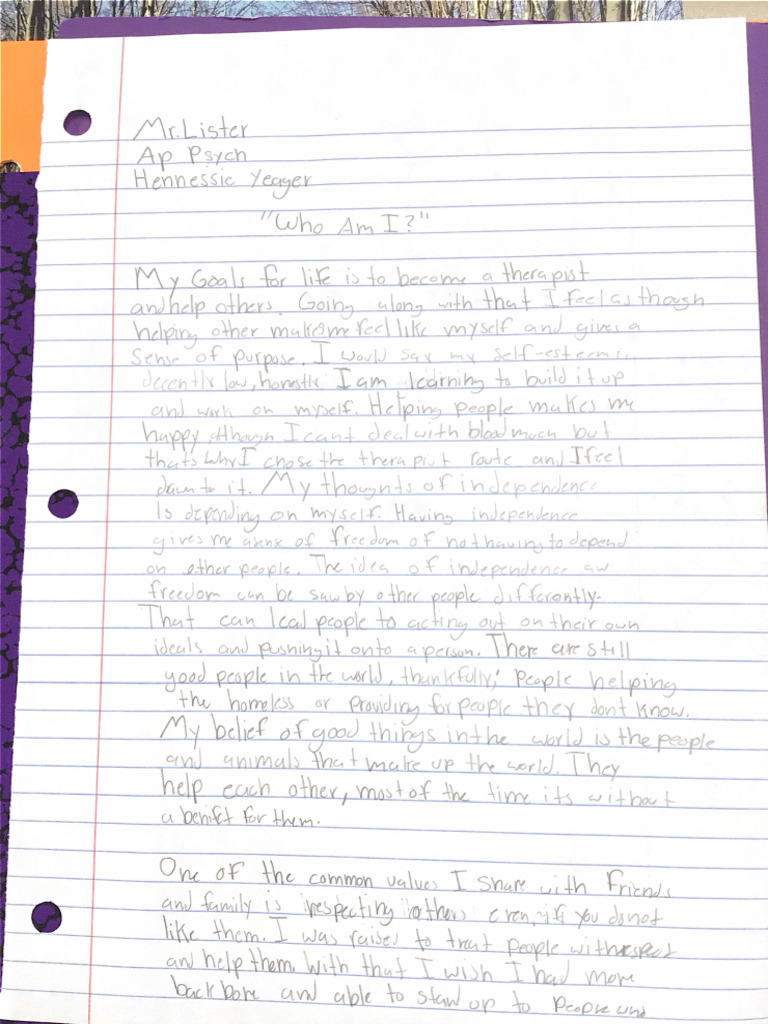 Mr. Lister
Ap Psych
Hennessie Yeager
"Who Am I?"
My Goals for life is to become a therapist
and help others. Going along with that I feel as though
helping other makes me feel like myself and gives a
sense of purpose. I would say my self-esteem is
decently low, honestly. I am learning to build it up
and work on myself. Helping people makes me
happy although I cant deal with blood much but
thats why I chose the therapist route and I feel
drawn to it. My thoughts of independence
Is depending on myself. Having independence
gives me a sense of freedom of not having to depend
on other people. The idea of independence and
freedom can be saw by other people differently.
That can lead people to acting out on their own
ideals and pushing it onto a person. There are still
good people in the world, thankfully; People helping
the homeless or providing for people they dont know.
My belief of good things in the world is the people
and animals that make up the world. They
help each other, most of the time its without
a benifit for them.
One of the common values I share with friends
and family is respecting others even if you do not
like them. I was raised to treat people with respect
and help them. With that I wish I had more
backbone and able to stand up to people